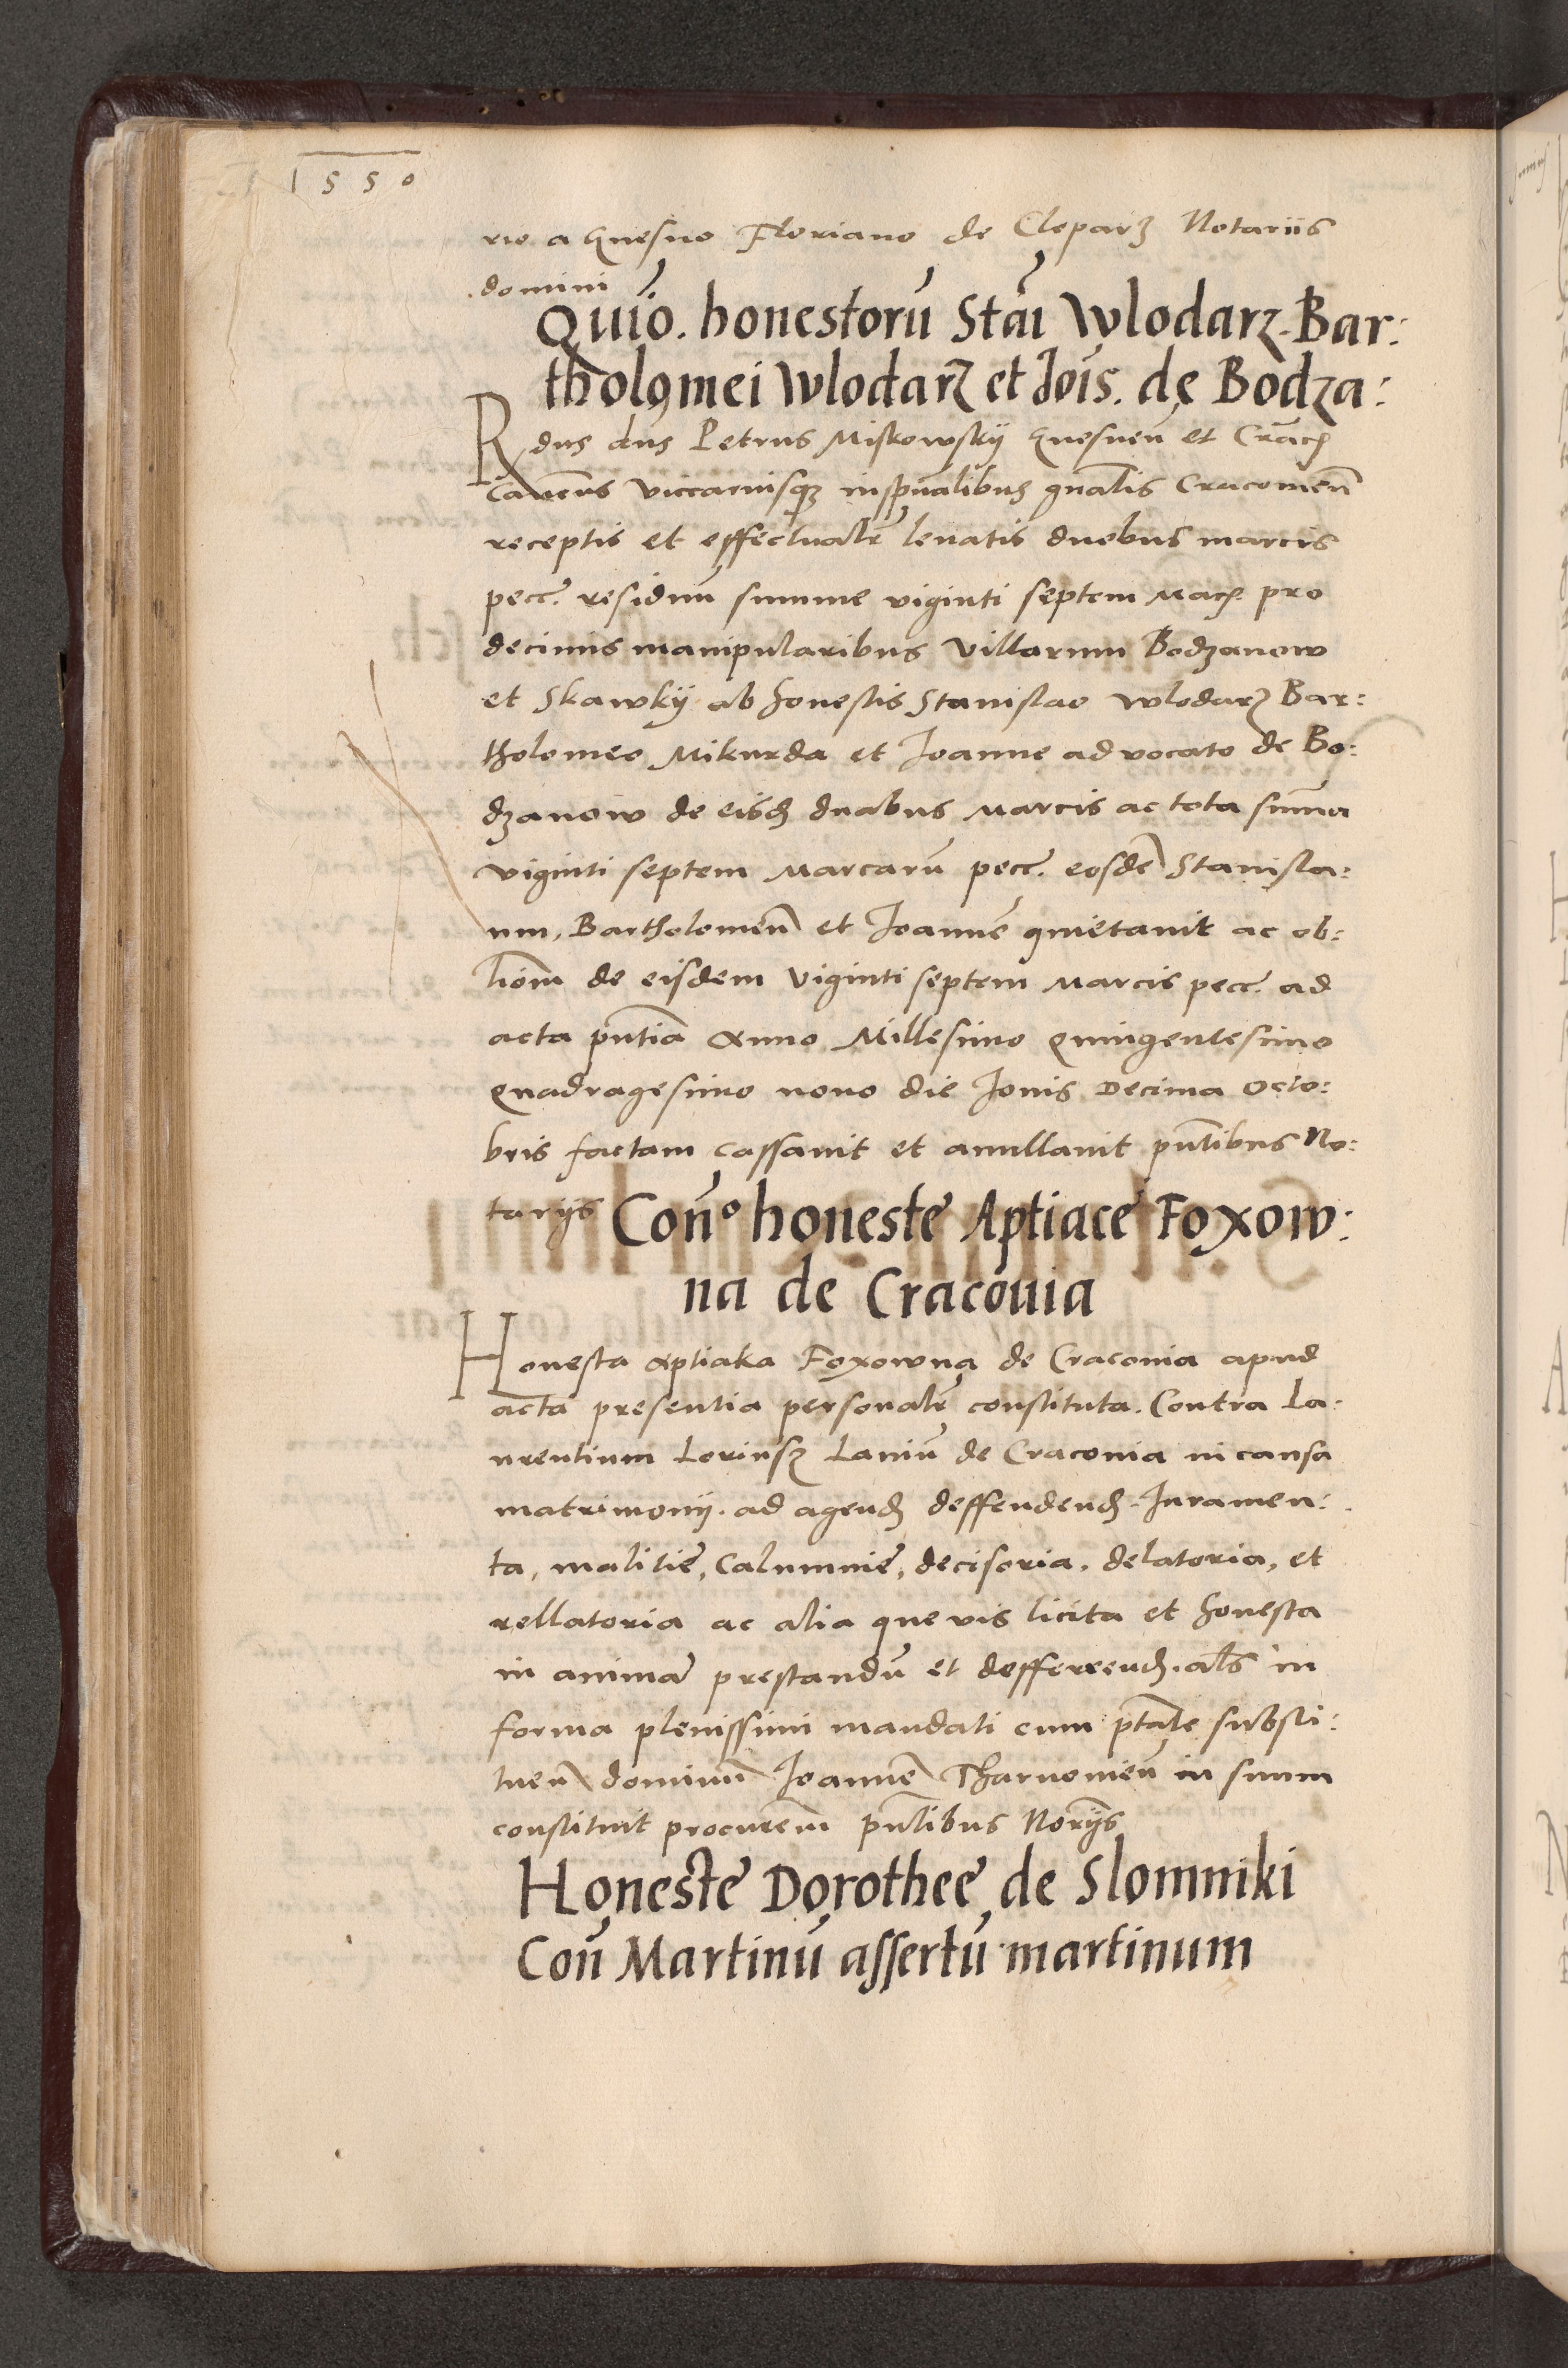 1550
rio a Gnesno Floriano de Clepar&#x292; Notariis
domini
Quiō. honestorū Stāi Wlodarz. Bar:
tholomei Wlodarz et Joīs. de Bodza:
Rdus dns Petrus Miskowskÿ Gnesneñ et Crac̄
Caneus vicariusqꝫ inspūalibus gnalis Cracovieñ
receptis et effectualr̄ levatis duobus marcis
pecc. residuū summe viginti septem Marc̄. pro
decimis manipularibus villarum Bodzanow
et Skawkÿ ab honestis Stanislao wlodarz Bar:
tholomeo Mikurda et Joanne advocato de Bo:
dzanow de eisd duabus Marcis ac tota sum̄a
viginti septem Marcarū pecc. eosdē Stanisla:
um, Bartholomeū et Joannē quietavit ac ob:
liōm de eisdem viginti septem Marcis pecc. ad
acta pn̄tia Anno Millesimo quingentesimo
quadragesimo nono die Jovis Decima Octo:
bris factam cassavit et anullavit pn̄tibus No:
tarijs
Con̄º honeste Aptiace Foxow:
na de Cracouia
Honesta Aptiaka Foxowna de Cracovia apud
acta presentia personalr̄ constituta. Contra La:
urentium Lorinsz Laniū de Cracovia in causa
matrimonij. ad agend deffendend. Juramen:
ta, malitie, Calumnie, decisoria, delatoria, et
rellatoria ac alia que vis licita et honesta
in animā prestandū et defferrend. als̄ in
forma plenissimi mandati cum ptāte substi:
tuen̄ dominū Joannē Tharnovieñ in suum
constituit procurem̄ pn̄tibus Norijs
Honeste Dorothee de Slomniki
Con̄ Martinū assertū martinum